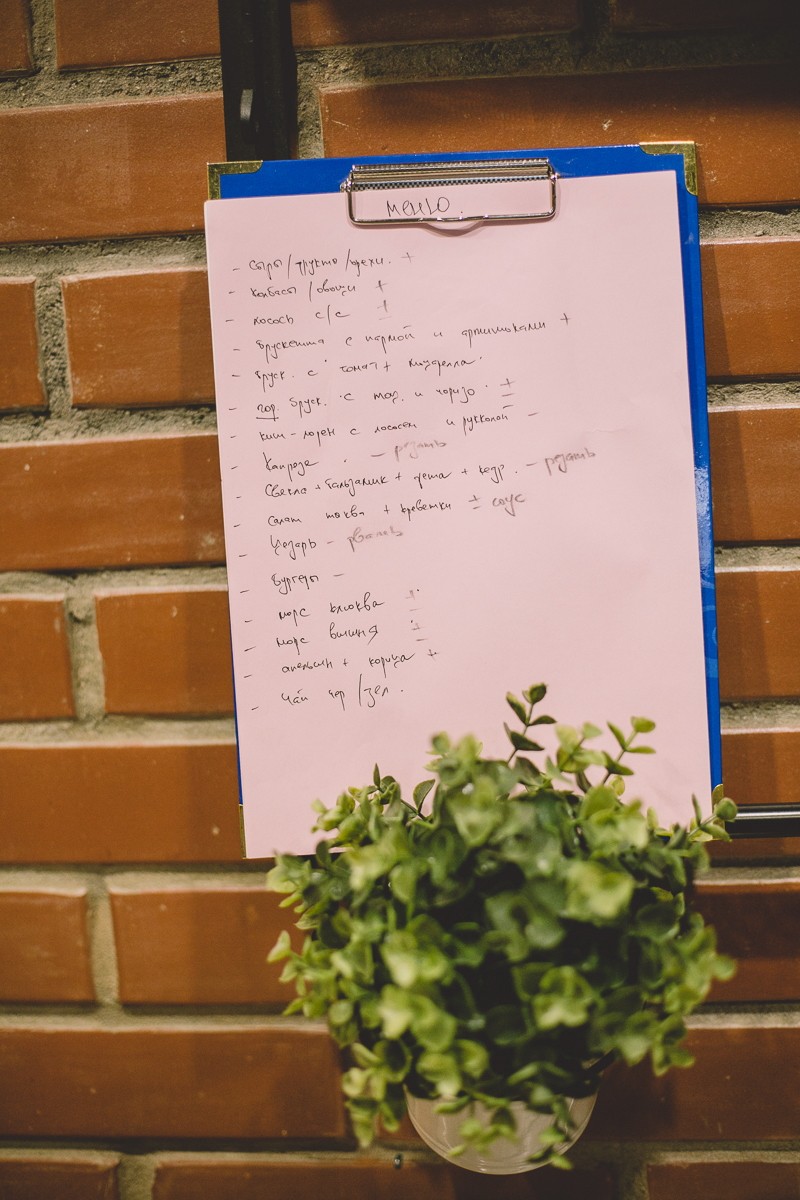 меню
- сыры/фрукты/орехи. +
- колбасы/овощи +
- лосось с/с ±
- брускетта с пармой и артишоками +
- бруск. с томат + моцарелла.
- гор. бруск. с моц. и чоризо. ±
- киш-лорен с лососем и рукколой -
- Капрезе . - резать
- Свекла + бальзамик + фета + кедр. - резать
- салат тыква + креветки ± соус
- Цезарь -
- Бургеры -
- морс клюква ±
- морс вишня ±
- апельсин + корица +
- чай чер/зел.